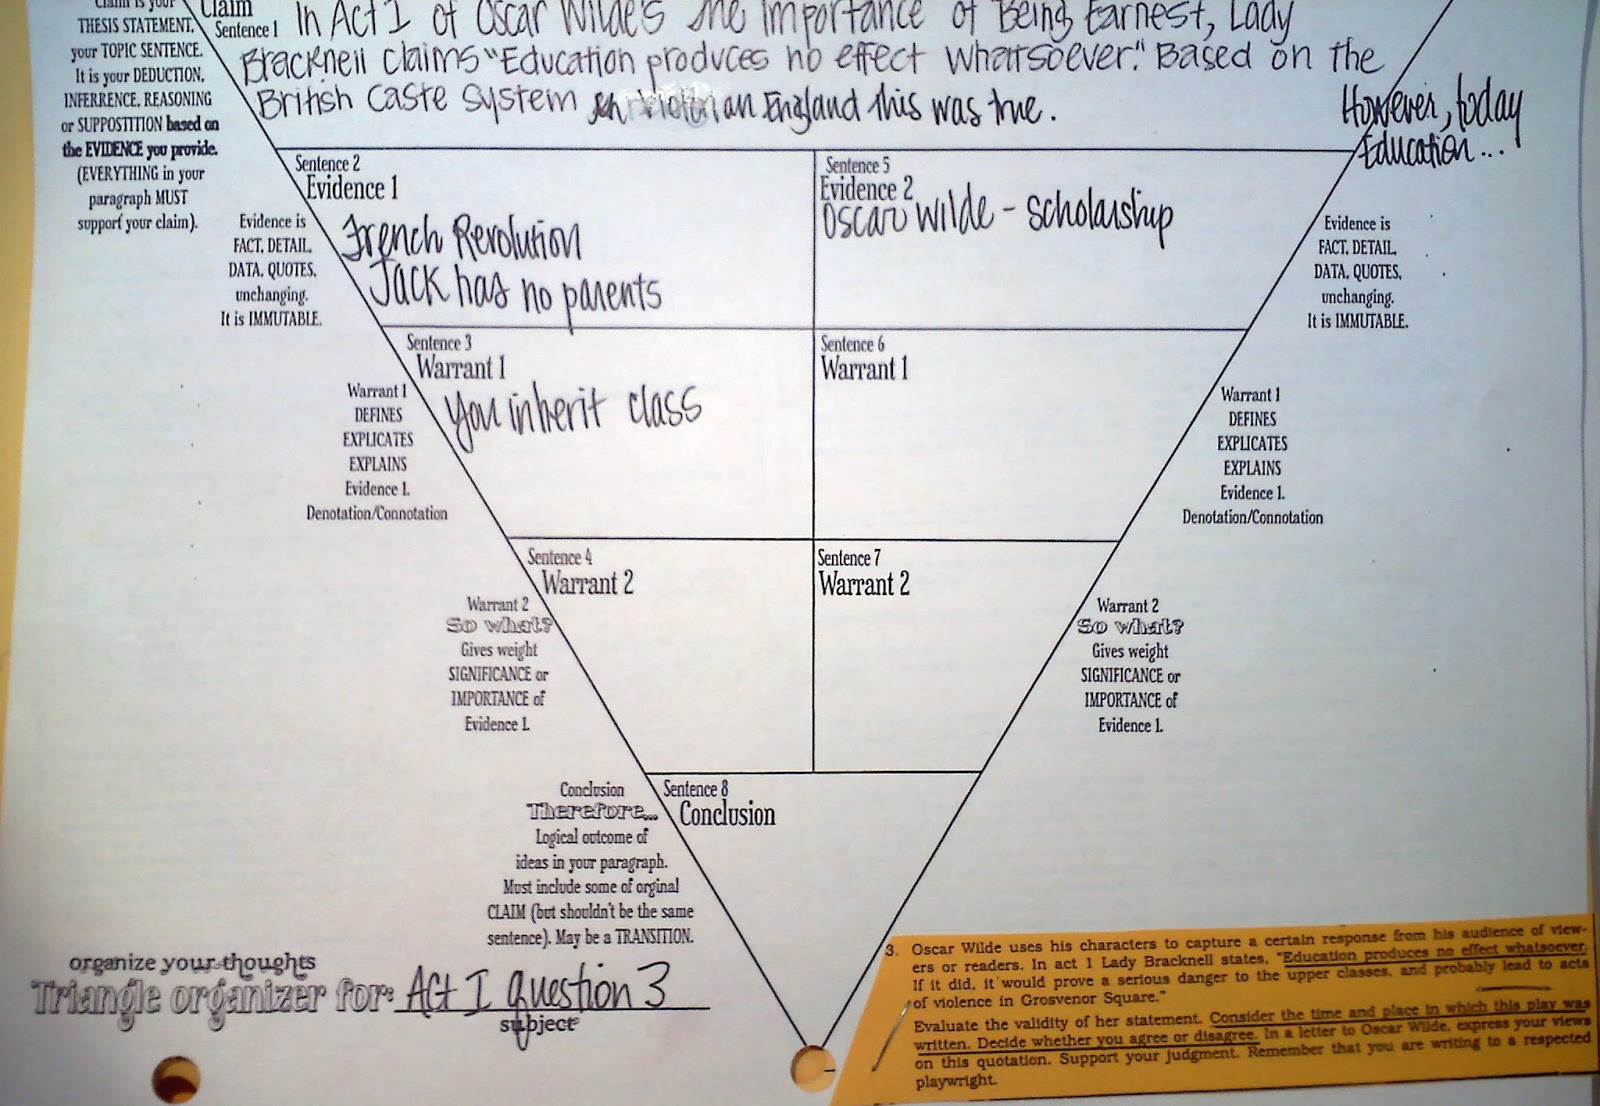 Claim is your
THESIS STATEMENT,
your TOPIC SENTENCE.
It is your DEDUCTION,
INFERRENCE, REASONING
or SUPPOSTITION based on
the EVIDENCE you provide.
(EVERYTHING in your
paragraph MUST
support your claim).
Claim
Sentence 1
In Act I of Oscar Wilde's The Importance of Being Earnest, Lady
Bracknell claims "Education produces no effect whatsoever." Based on the
British Caste System in Victorian England this was true.
However, today
Education...
Sentence 2
Evidence 1
French Revolution
Jack has no parents
Evidence is
FACT, DETAIL,
DATA, QUOTES,
unchanging.
It is IMMUTABLE.
Sentence 5
Evidence 2
Oscar Wilde - scholarship
Evidence is
FACT, DETAIL,
DATA, QUOTES,
unchanging.
It is IMMUTABLE.
Sentence 3
Warrant 1
You inherit class
Warrant 1
DEFINES
EXPLICATES
EXPLAINS
Evidence 1.
Denotation/Connotation
Sentence 6
Warrant 1
Warrant 1
DEFINES
EXPLICATES
EXPLAINS
Evidence 1.
Denotation/Connotation
Sentence 4
Warrant 2
Warrant 2
So what?
Gives weight
SIGNIFICANCE or
IMPORTANCE of
Evidence 1.
Sentence 7
Warrant 2
Warrant 2
So what?
Gives weight
SIGNIFICANCE or
IMPORTANCE of
Evidence 1.
Sentence 8
Conclusion
Conclusion
Therefore...
Logical outcome of
ideas in your paragraph.
Must include some of orginal
CLAIM (but shouldn't be the same
sentence). May be a TRANSITION.
organize your thoughts
Triangle organizer for: Act I question 3
subject
3. Oscar Wilde uses his characters to capture a certain response from his audience of view-
ers or readers. In act 1 Lady Bracknell states, "Education produces no effect whatsoever.
If it did, it would prove a serious danger to the upper classes, and probably lead to acts
of violence in Grosvenor Square."
Evaluate the validity of her statement. Consider the time and place in which this play was
written. Decide whether you agree or disagree. In a letter to Oscar Wilde, express your views
on this quotation. Support your judgment. Remember that you are writing to a respected
playwright.